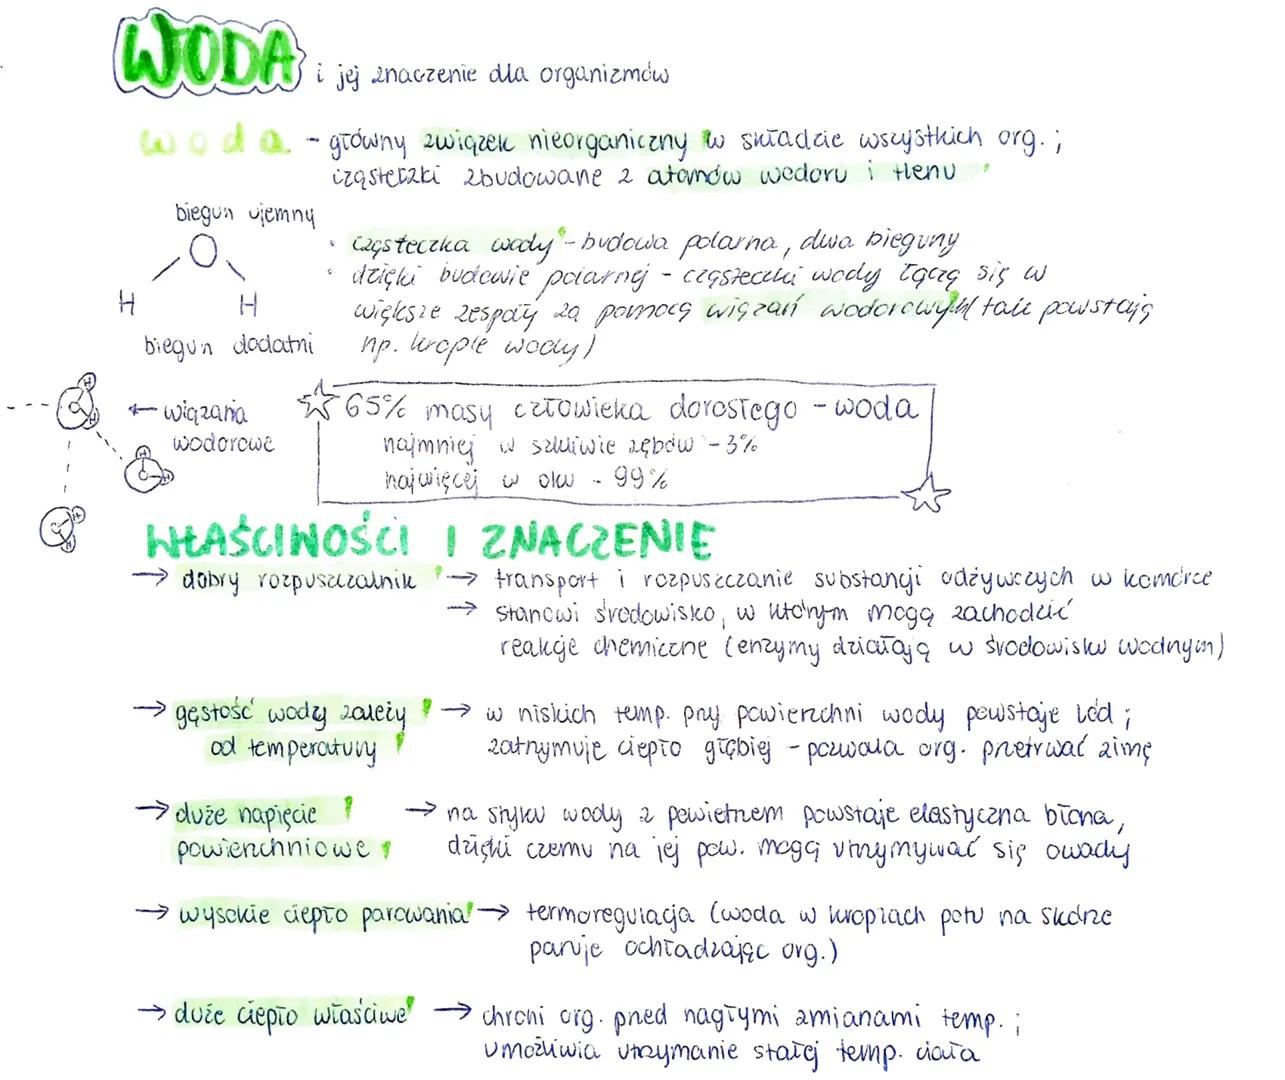 WODA i jej znaczenie dla organizmów
woda - główny związek nieorganiczny w składzie wszystkich org.;
cząsteczki zbudowane z atomów wodoru i tlenu
biegun ujemny
O
H H
biegun dodatni
• cząsteczka wody - budowa polarna, dwa bieguny
• dzięki budowie polarnej - cząsteczki wody łączą się w
większe zespoły za pomocą wiązań wodorowych (tak powstają
np. krople wody)
← wiązania
wodorowe
65% masy człowieka dorosłego - woda
najmniej w szkliwie zębów - 3%
najwięcej w oku - 99%
WŁAŚCIWOŚCI I ZNACZENIE
→ dobry rozpuszczalnik → transport i rozpuszczanie substancji odżywczych w komórce
→ stanowi środowisko, w którym mogą zachodzić
reakcje chemiczne (enzymy działają w środowisku wodnym)
→ gęstość wody zależy → w niskich temp. przy powierzchni wody powstaje lód;
od temperatury zatrzymuje ciepło głębiej - pozwala org. przetrwać zimę
→ duże napięcie → na styku wody z powietrzem powstaje elastyczna błona,
powierzchniowe dzięki czemu na jej pow. mogą utrzymywać się owady
→ wysokie ciepło parowania → termoregulacja (woda w kroplach potu na skórze
paruje ochładzając org.)
→ duże ciepło właściwe → chroni org. przed nagłymi zmianami temp.;
umożliwia utrzymanie stałej temp. ciała